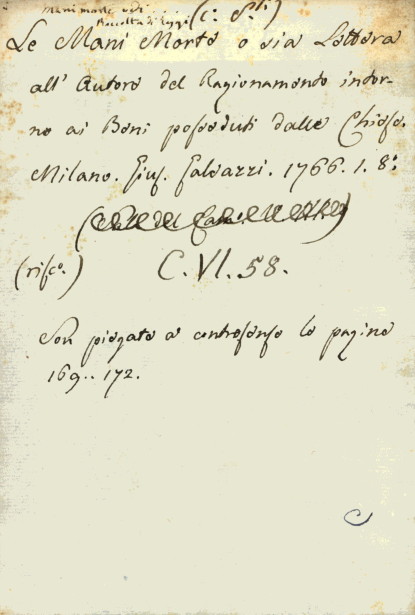 Mani morte
Raccolta di Leggi
(c: S.ti)
Le Mani Morte o sia Lettera
all' Autore del Ragionamento intor-
no ai Beni posseduti dalle Chiese.
Milano. Gius. Galeazzi. 1766. 1. 8:
(risc°.)
C. VI. 58.
Son piegate a controsenso le pagine
169.. 172.